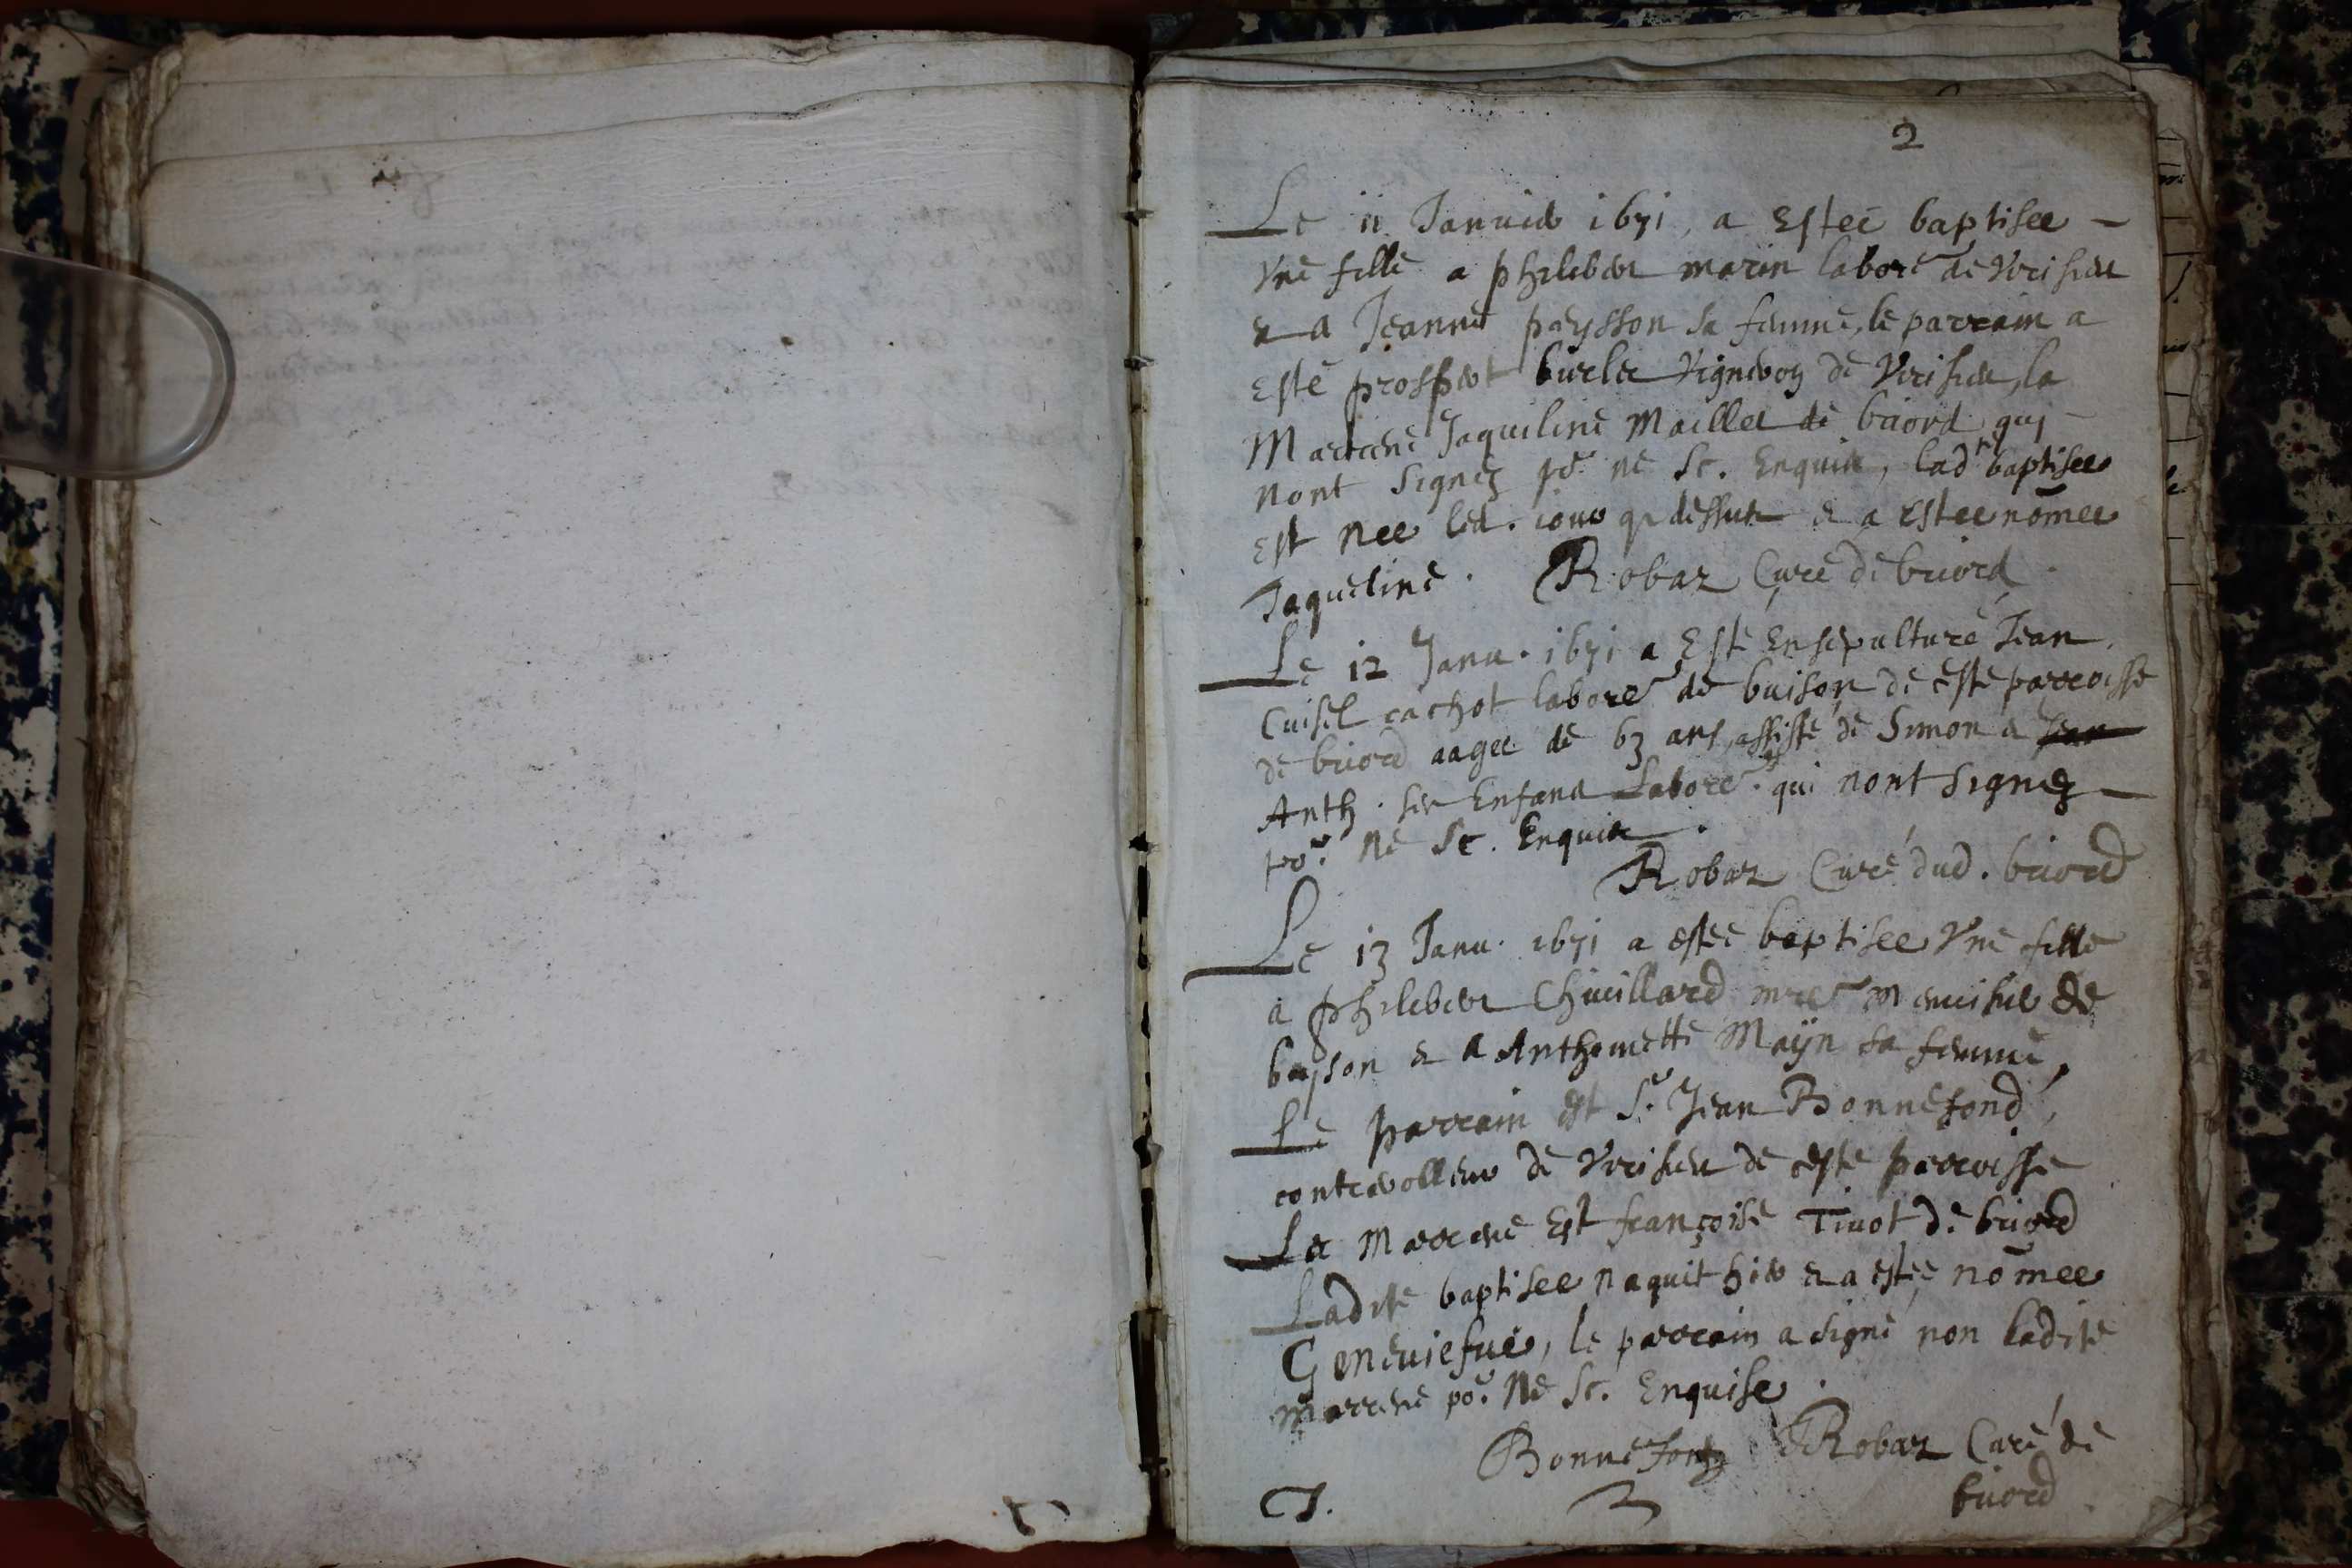 2
Le 11 Januier 1671, a Estéé baptisee
Vne fille a philebert marin labore.r de Verisieu
& a Jeanne peysson sa femme, le parrain a
Esté prosper burlet Vigneron de Verisieu, la
Marrene Jaqueline Maillet de briord qui
nont Signez po.r ne Sc. Enquis, lad.e baptisee
Est nee led. iour q dessus & a Estee nōmee
Jaqueline. Robaz Curé de briord.
Le 12 Janu. 1671 a Esté Ensepulturé Jean
Cuisel cachot labore.r de buison de ceste parroisse
de briord aagee de 63 ans, assisté de Simon & Jean
Anth. ses Enfans labore.rs qui nont Signez
po.r Ne Sc. Enquis.
Robaz Curé dud. briord
Le 13 Janu. 1671 a estéé baptisee Vne fille
a philebert Chuillard mre menuisier de
buyson & a Anthoinette Mayn sa femme,
Le parrain est S.r Jean Bonnefond,
controlleur de Verisieu de ceste parroisse
La Marrene Est françoise Tiuot de briord
Ladite baptisee naquit hier & a estée nōmee
Geneuiefue, le parrain a signé non ladite
marrene po.r Ne Sc. Enquise.
Bonnefont Robaz Curé de
briord